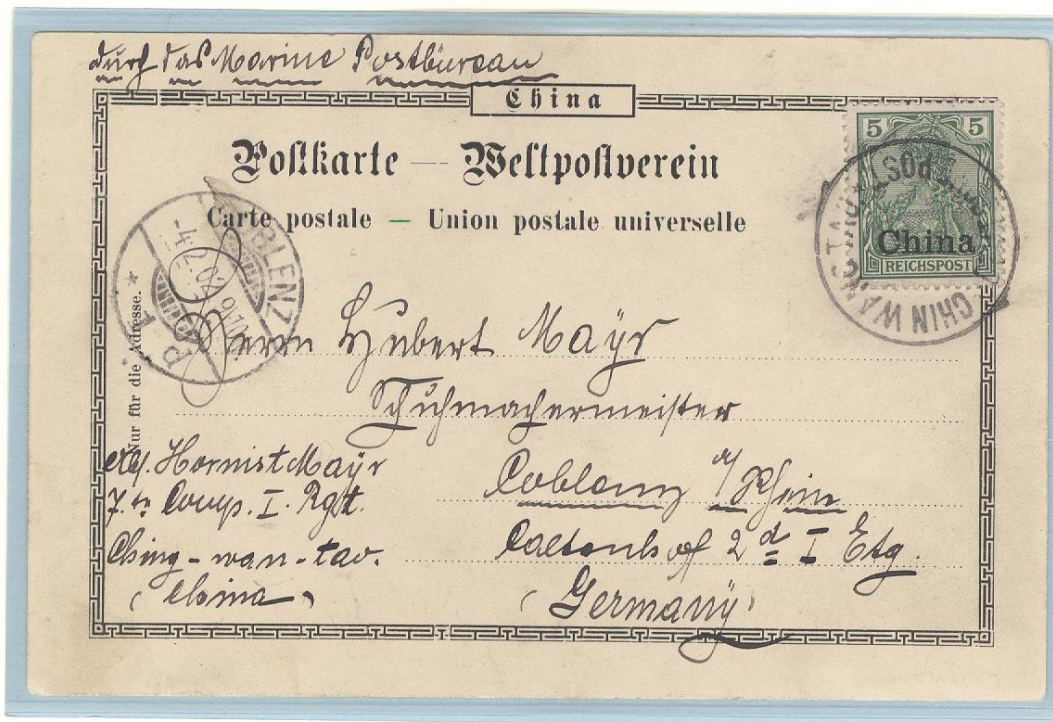 durch das Marine Postbüreau
China
Postkarte — Weltpostverein
Carte postale — Union postale universelle
5 5
China
REICHSPOST
CHIN WANG TAU
POST
COBLENZ
Nur für die Adresse.
Herrn Hubert Mayr
Schuhmachermeister
Coblenz a/Rhein
2 d I Etg.
(Germany)
Hornist Mayr
7. Comp. I. Rgt.
Ching-wan-tao.
(China)